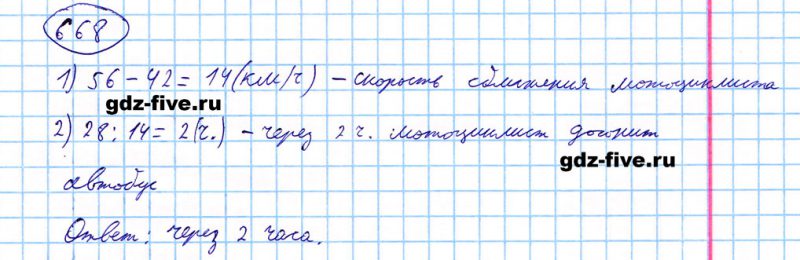 668
1) 56 - 42 = 14 (км/ч) - скорость сближения мотоциклиста
gdz-five.ru
2) 28 : 14 = 2 (ч.) - через 2 ч. мотоциклист догонит
gdz-five.ru
автобус
Ответ: через 2 часа.